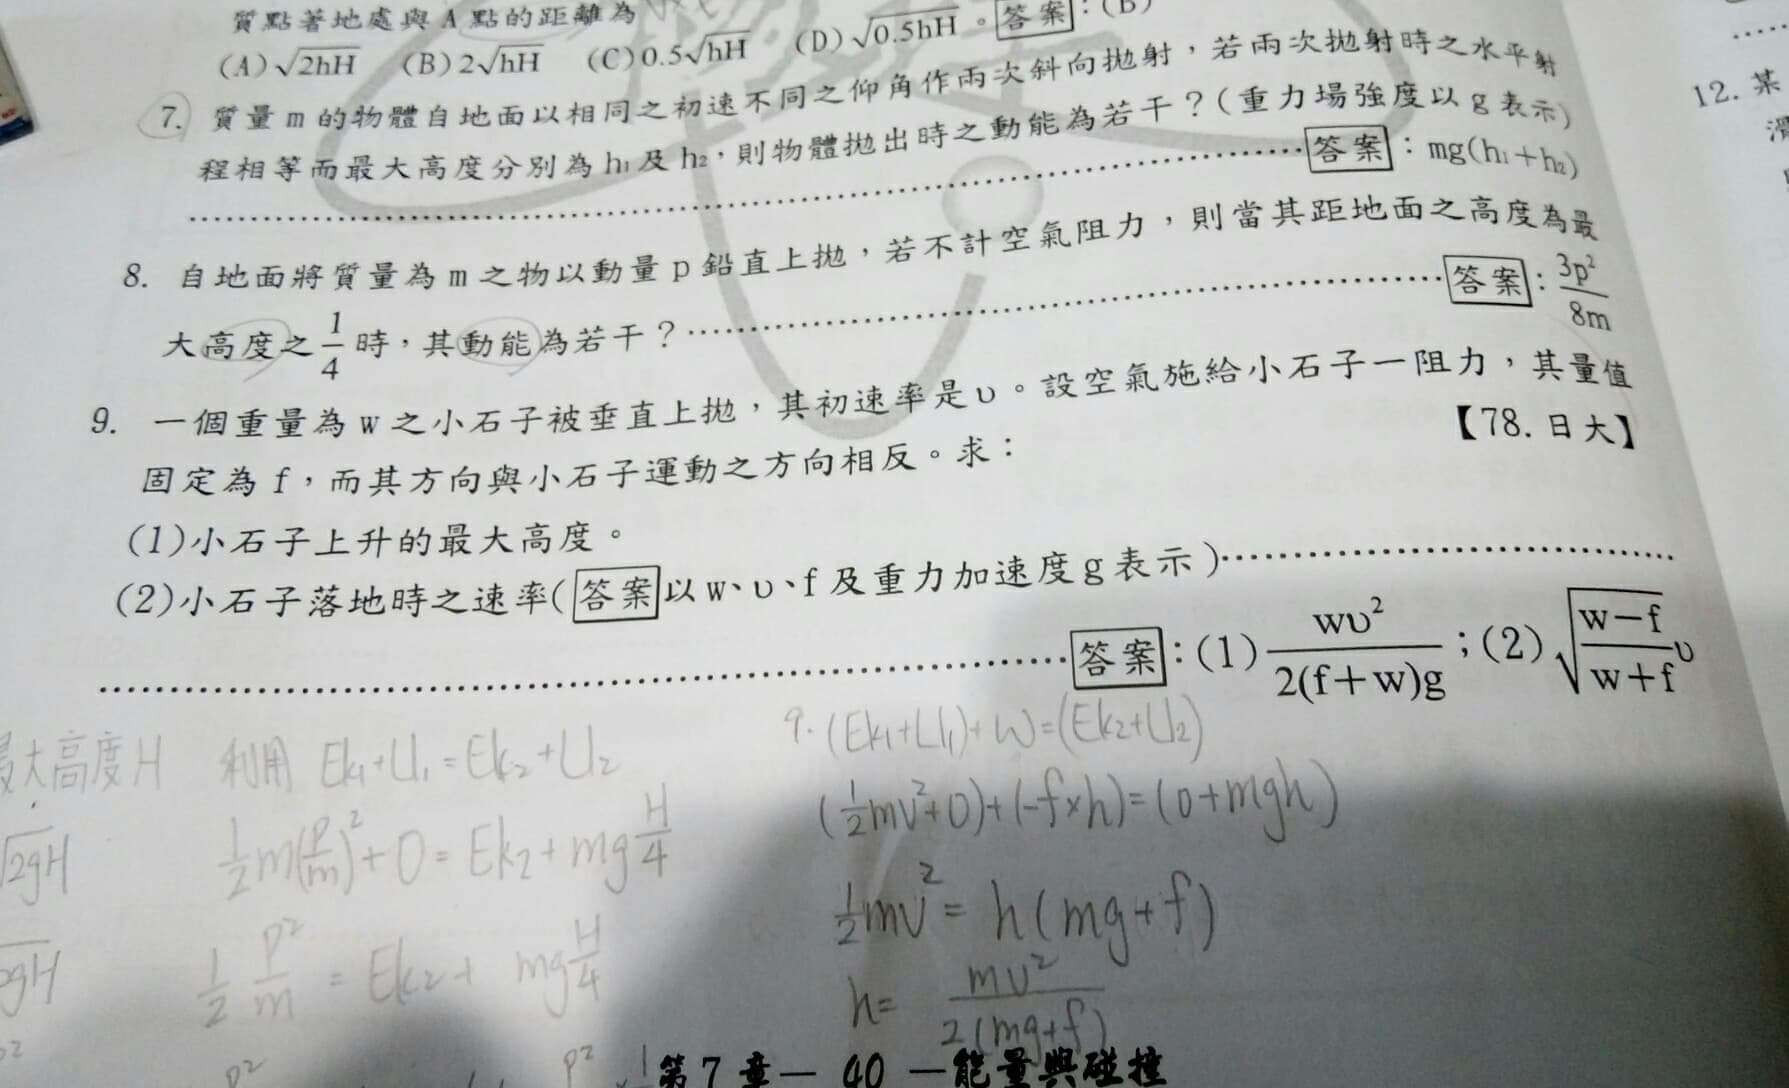 質點著地處與 A 點的距離為
(A)√2hH (B)2√hH (C)0.5√hH (D)√0.5hH 。答案:(B)
7. 質量 m 的物體自地面以相同之初速不同之仰角作兩次斜向拋射,若兩次拋射時之水平射
程相等而最大高度分別為 h₁ 及 h₂,則物體拋出時之動能為若干?(重力場強度以 g 表示)
答案:mg(h₁+h₂)
8. 自地面將質量為 m 之物以動量 p 鉛直上拋,若不計空氣阻力,則當其距地面之高度為最
大高度之 1/4 時,其動能為若干?答案:3p²/8m
9. 一個重量為 w 之小石子被垂直上拋,其初速率是 υ。設空氣施給小石子一阻力,其量值
固定為 f,而其方向與小石子運動之方向相反。求: 【78. 日大】
(1)小石子上升的最大高度。
(2)小石子落地時之速率(答案以 w、υ、f 及重力加速度 g 表示)
答案:(1) wυ²/2(f+w)g ;(2) √(w−f/w+f) υ
最大高度H 利用 Ek₁+U₁=Ek₂+U₂
√2gH
½m(p/m)²+0=Ek₂+mg H/4
½ p²/m = Ek₂+ mg H/4
9. (Ek₁+U₁)+W=(Ek₂+U₂)
(½mv²+0)+(-f×h)=(0+mgh)
½mv²=h(mg+f)
h= mv²/2(mg+f)
第 7 章 — 40 — 能量與碰撞
12. 某